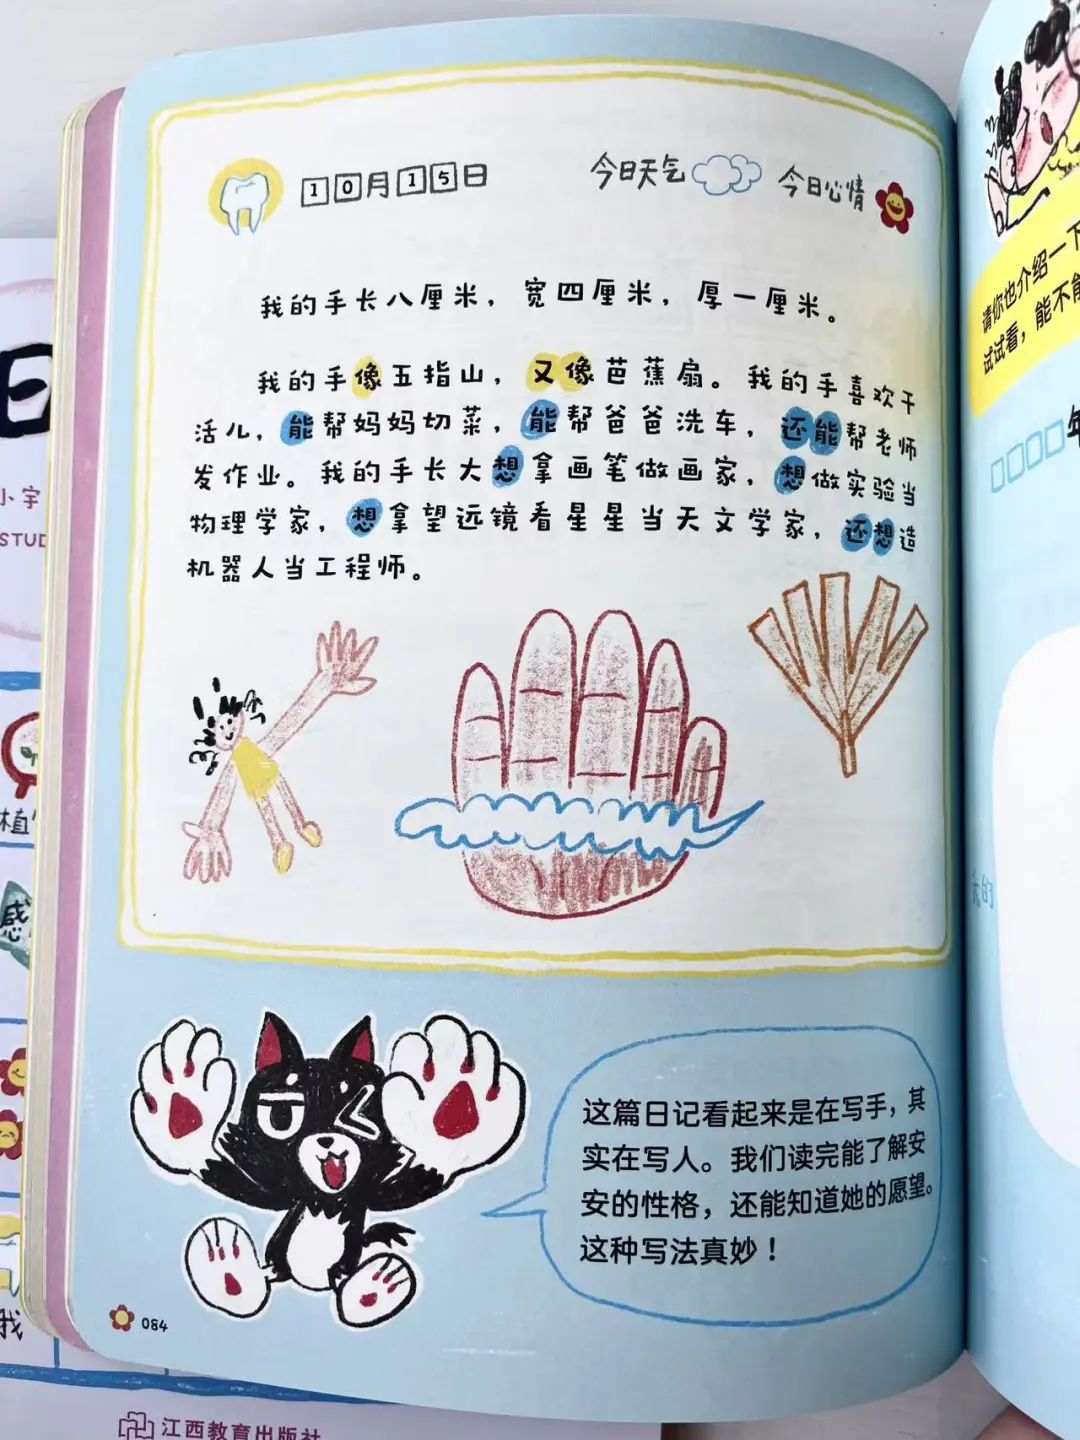 10月15日 今日天气 今日心情
我的手长八厘米，宽四厘米，厚一厘米。
我的手像五指山，又像芭蕉扇。我的手喜欢干
活儿，能帮妈妈切菜，能帮爸爸洗车，还能帮老师
发作业。我的手长大想拿画笔做画家，想做实验当
物理学家，想拿望远镜看星星当天文学家，还想造
机器人当工程师。
这篇日记看起来是在写手，其
实在写人。我们读完能了解安
安的性格，还能知道她的愿望。
这种写法真妙！
084
请你也介绍一下
试试看，能不能
年
的
日
小宇
STUD
植
感
我
江西教育出版社